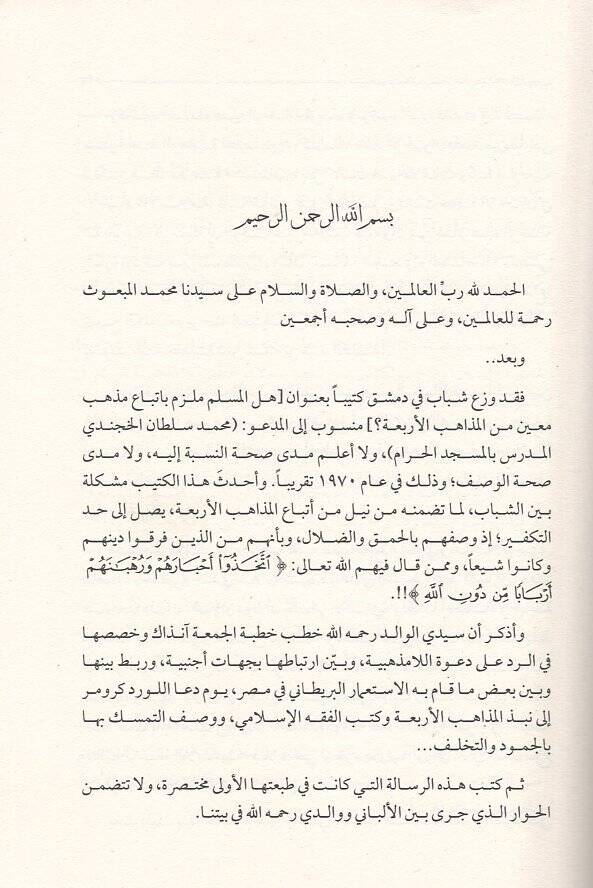 بسم الله الرحمن الرحيم
الحمد لله ربِّ العالمين، والصلاة والسلام على سيدنا محمد المبعوث
رحمة للعالمين، وعلى آله وصحبه أجمعين
وبعد..
فقد وزع شباب في دمشق كتيباً بعنوان [هل المسلم ملزم باتباع مذهب
معين من المذاهب الأربعة؟] منسوب إلى المدعو: (محمد سلطان الخجندي
المدرس بالمسجد الحرام)، ولا أعلم مدى صحة النسبة إليه، ولا مدى
صحة الوصف؛ وذلك في عام ١٩٧٠ تقريباً. وأحدثَ هذا الكتيب مشكلة
بين الشباب، لما تضمنه من نيل من أتباع المذاهب الأربعة، يصل إلى حد
التكفير؛ إذ وصفهم بالحمق والضلال، وبأنهم من الذين فرقوا دينهم
وكانوا شيعاً، وممن قال فيهم الله تعالى: ﴿ ٱتَّخَذُوٓاْ أَحۡبَارَهُمۡ وَرُهۡبَٰنَهُمۡ
أَرۡبَابٗا مِّن دُونِ ٱللَّهِ ﴾!!.
وأذكر أن سيدي الوالد رحمه الله خطب خطبة الجمعة آنذاك وخصصها
في الرد على دعوة اللامذهبية، وبيّن ارتباطها بجهات أجنبية، وربط بينها
وبين بعض ما قام به الاستعمار البريطاني في مصر، يوم دعا اللورد كرومر
إلى نبذ المذاهب الأربعة وكتب الفقه الإسلامي، ووصف التمسك بها
بالجمود والتخلف...
ثم كتب هذه الرسالة التي كانت في طبعتها الأولى مختصرة، ولا تتضمن
الحوار الذي جرى بين الألباني ووالدي رحمه الله في بيتنا.